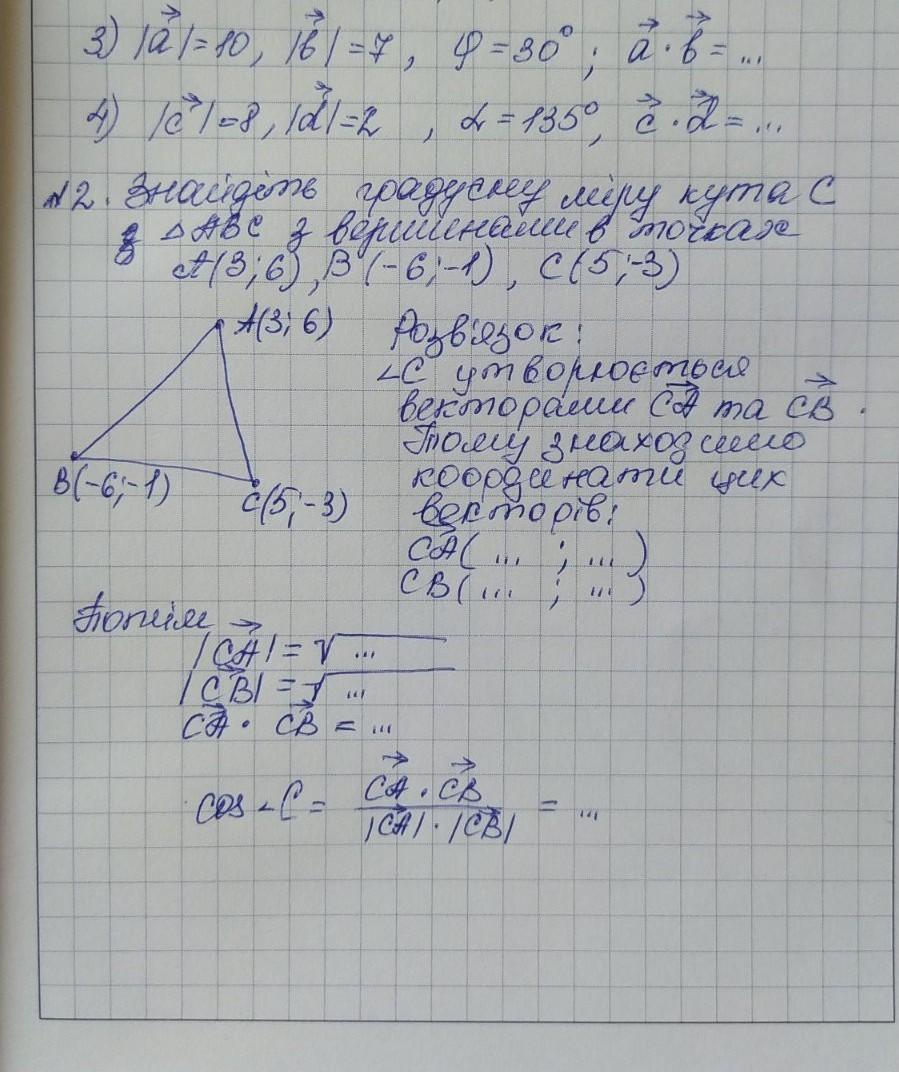 3) |a⃗|=10, |b⃗|=7, φ=30°; a⃗·b⃗=...
4) |c⃗|=8, |d⃗|=2, α=135°, c⃗·d⃗=...
№2. Знайдіть градусну міру кута C
з △ABC з вершинами в точках
A(3;6), B(-6;-1), C(5;-3)
A(3;6)
B(-6;-1)
C(5;-3)
Розв'язок:
∠C утворюється
векторами CA⃗ та CB⃗.
Тому знаходимо
координати цих
векторів:
CA⃗(... ; ...)
CB(... ; ...)
Потім
|CA⃗| = √...
|CB⃗| = √...
CA⃗ · CB⃗ = ...
cos ∠C = CA⃗ · CB⃗ / |CA⃗| · |CB⃗| = ...